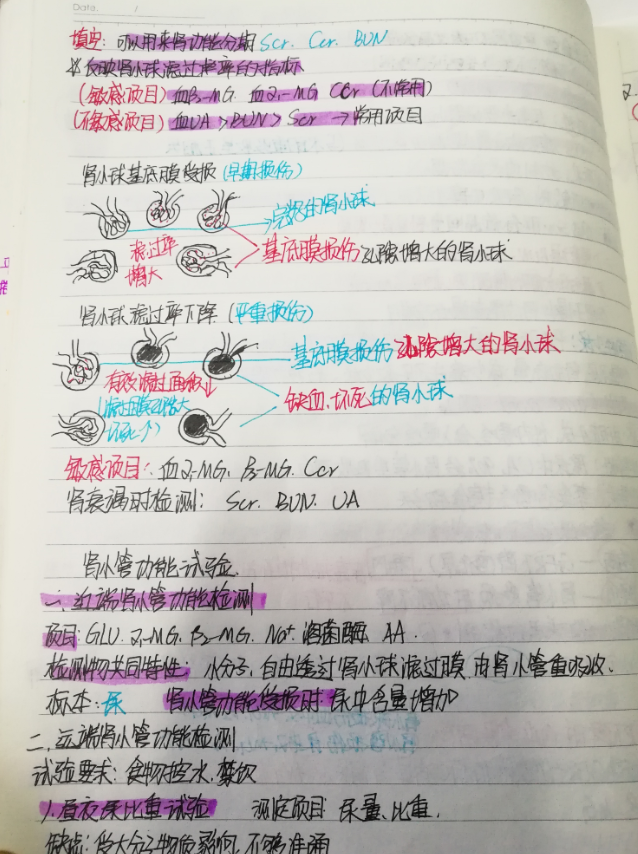 Date. /
填空: 可以用来肾功能分期 Scr. Ccr. BUN
反映肾小球滤过率的指标
(敏感项目) 血β₂-MG. 血α₁-MG Ccr (不常用)
(不敏感项目) 血UA > BUN > Scr → 常用项目
肾小球基底膜受损 (早期损伤)
→ 完整的肾小球
滤过率
增大
基底膜损伤 孔隙增大的肾小球
肾小球滤过率下降 (严重损伤)
基底膜损伤 孔隙增大的肾小球
有效滤过面积↓
(滤过膜孔隙大
坏死↑)
缺血、坏死的肾小球
敏感项目: 血α₁-MG. β₂-MG. Ccr
肾衰竭时检测: Scr. BUN. UA
肾小管功能试验.
一、近端肾小管功能检测
项目: GLU. α₁-MG. β₂-MG. Na⁺. 溶菌酶. AA.
检测物共同特性: 小分子, 自由透过肾小球滤过膜, 由肾小管重吸收.
标本: 尿 肾小管功能受损时. 尿中含量增加
二、远端肾小管功能检测
试验要求: 食物控水, 禁饮
1. 昼夜尿比重试验 测定项目: 尿量、比重.
缺点: 受大分子物质影响, 不够准确